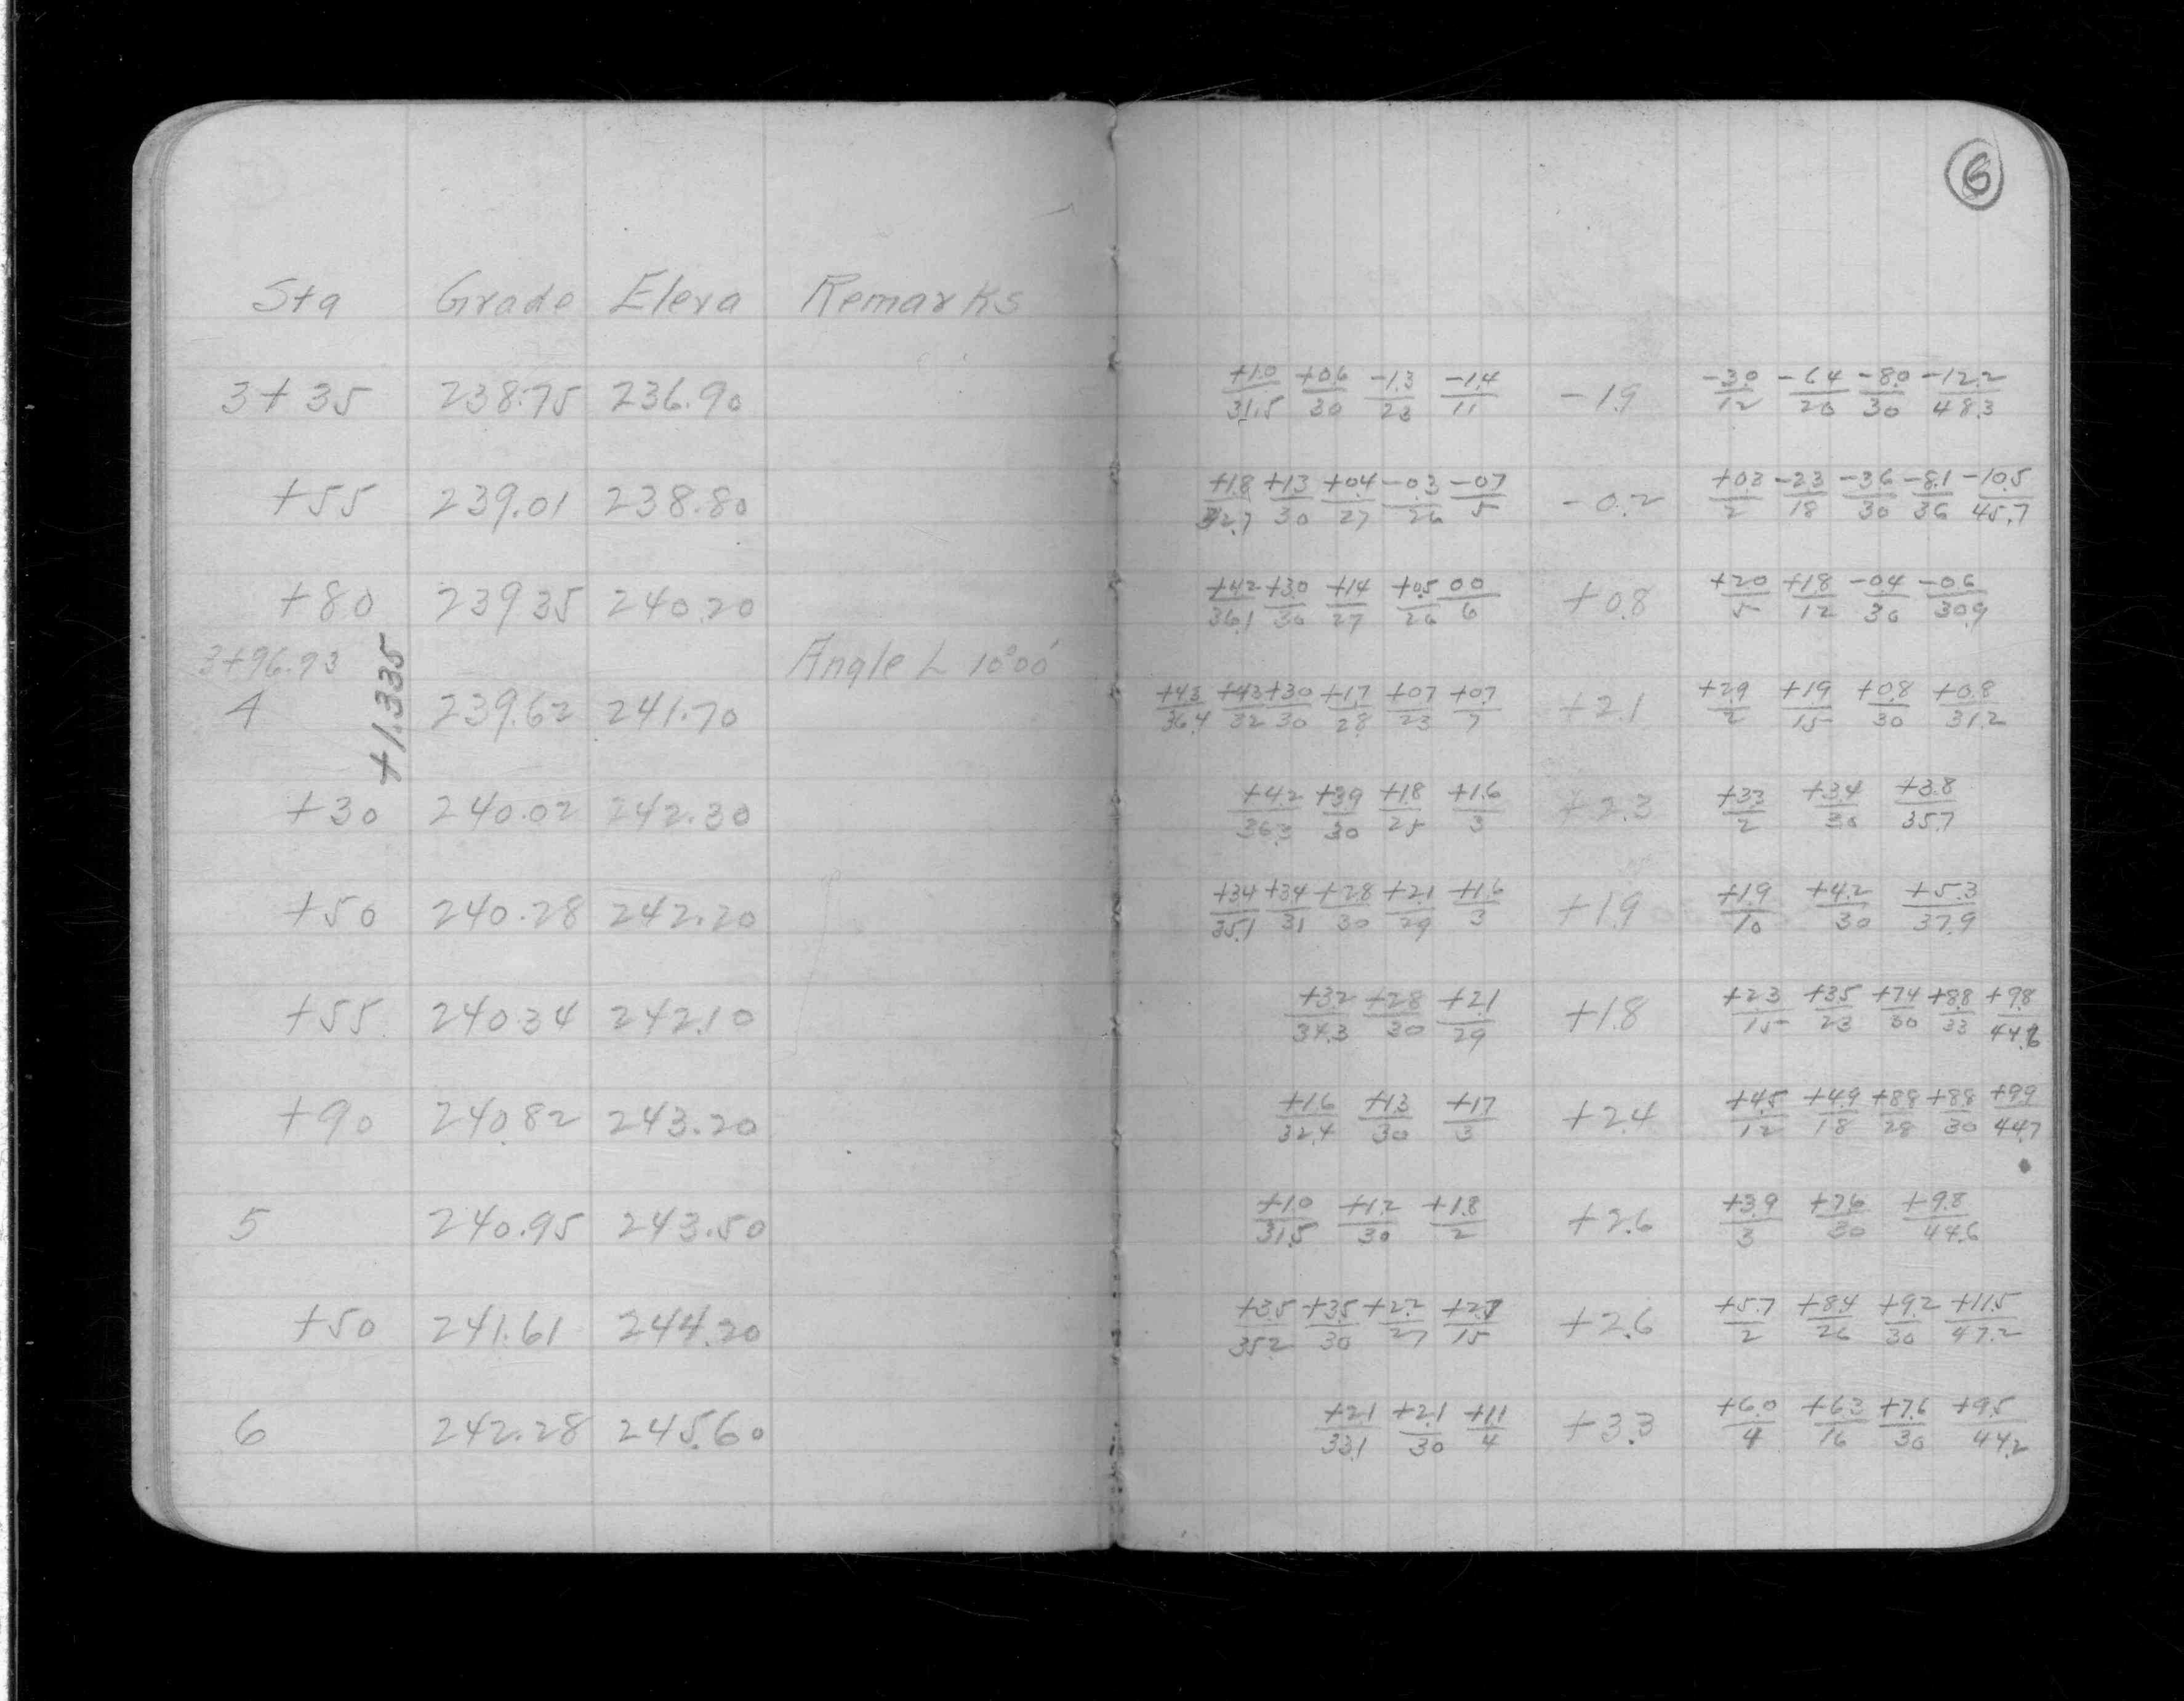 6
Sta Grade Eleva Remarks
3+35 238.75 236.90 +1.0/31.5 +0.6/30 -1.3/23 -1.4/11 -1.9 -3.0/12 -6.4/20 -8.0/30 -12.2/48.3
+55 239.01 238.80 +1.8/32.7 +1.3/30 +0.4/27 -0.3/26 -0.7/5 -0.2 +0.3/2 -2.3/18 -3.6/30 -8.1/36 -10.5/45.7
+80 239.35 240.20 +4.2/36.1 +3.0/30 +1.4/27 +0.5/26 0.0/6 +0.8 +2.0/5 +1.8/12 -0.4/30 -0.6/30.9
3+96.93 Angle L 10°00'
4 239.62 241.70 +4.3/36.4 +4.3/32 +3.0/30 +1.7/28 +0.7/23 +0.7/7 +2.1 +2.9/2 +1.9/15 +0.8/30 +0.8/31.2
+1.335
+30 240.02 242.30 +4.2/36.3 +3.9/30 +1.8/25 +1.6/3 +2.3 +3.3/2 +3.4/30 +3.8/35.7
+50 240.28 242.20 +3.4/35.1 +3.4/31 +2.8/30 +2.1/29 +1.6/3 +1.9 +1.9/10 +4.2/30 +5.3/37.9
+55 240.34 242.10 +3.2/34.3 +2.8/30 +2.1/29 +1.8 +2.3/15 +3.5/23 +7.4/30 +8.8/33 +9.8/44.6
+90 240.82 243.20 +1.6/32.4 +1.3/30 +1.7/3 +2.4 +4.5/12 +4.9/18 +8.8/28 +8.8/30 +9.9/44.7
5 240.95 243.50 +1.0/31.5 +1.2/30 +1.8/2 +2.6 +3.9/3 +7.6/30 +9.8/44.6
+50 241.61 244.20 +3.5/35.2 +3.5/30 +2.2/27 /15 +2.6 +5.7/2 +8.4/26 +9.2/30 +11.5/47.2
6 242.28 245.60 +2.1/33.1 +2.1/30 +1.1/4 +3.3 +6.0/4 +6.3/16 +7.6/30 +9.5/44.2